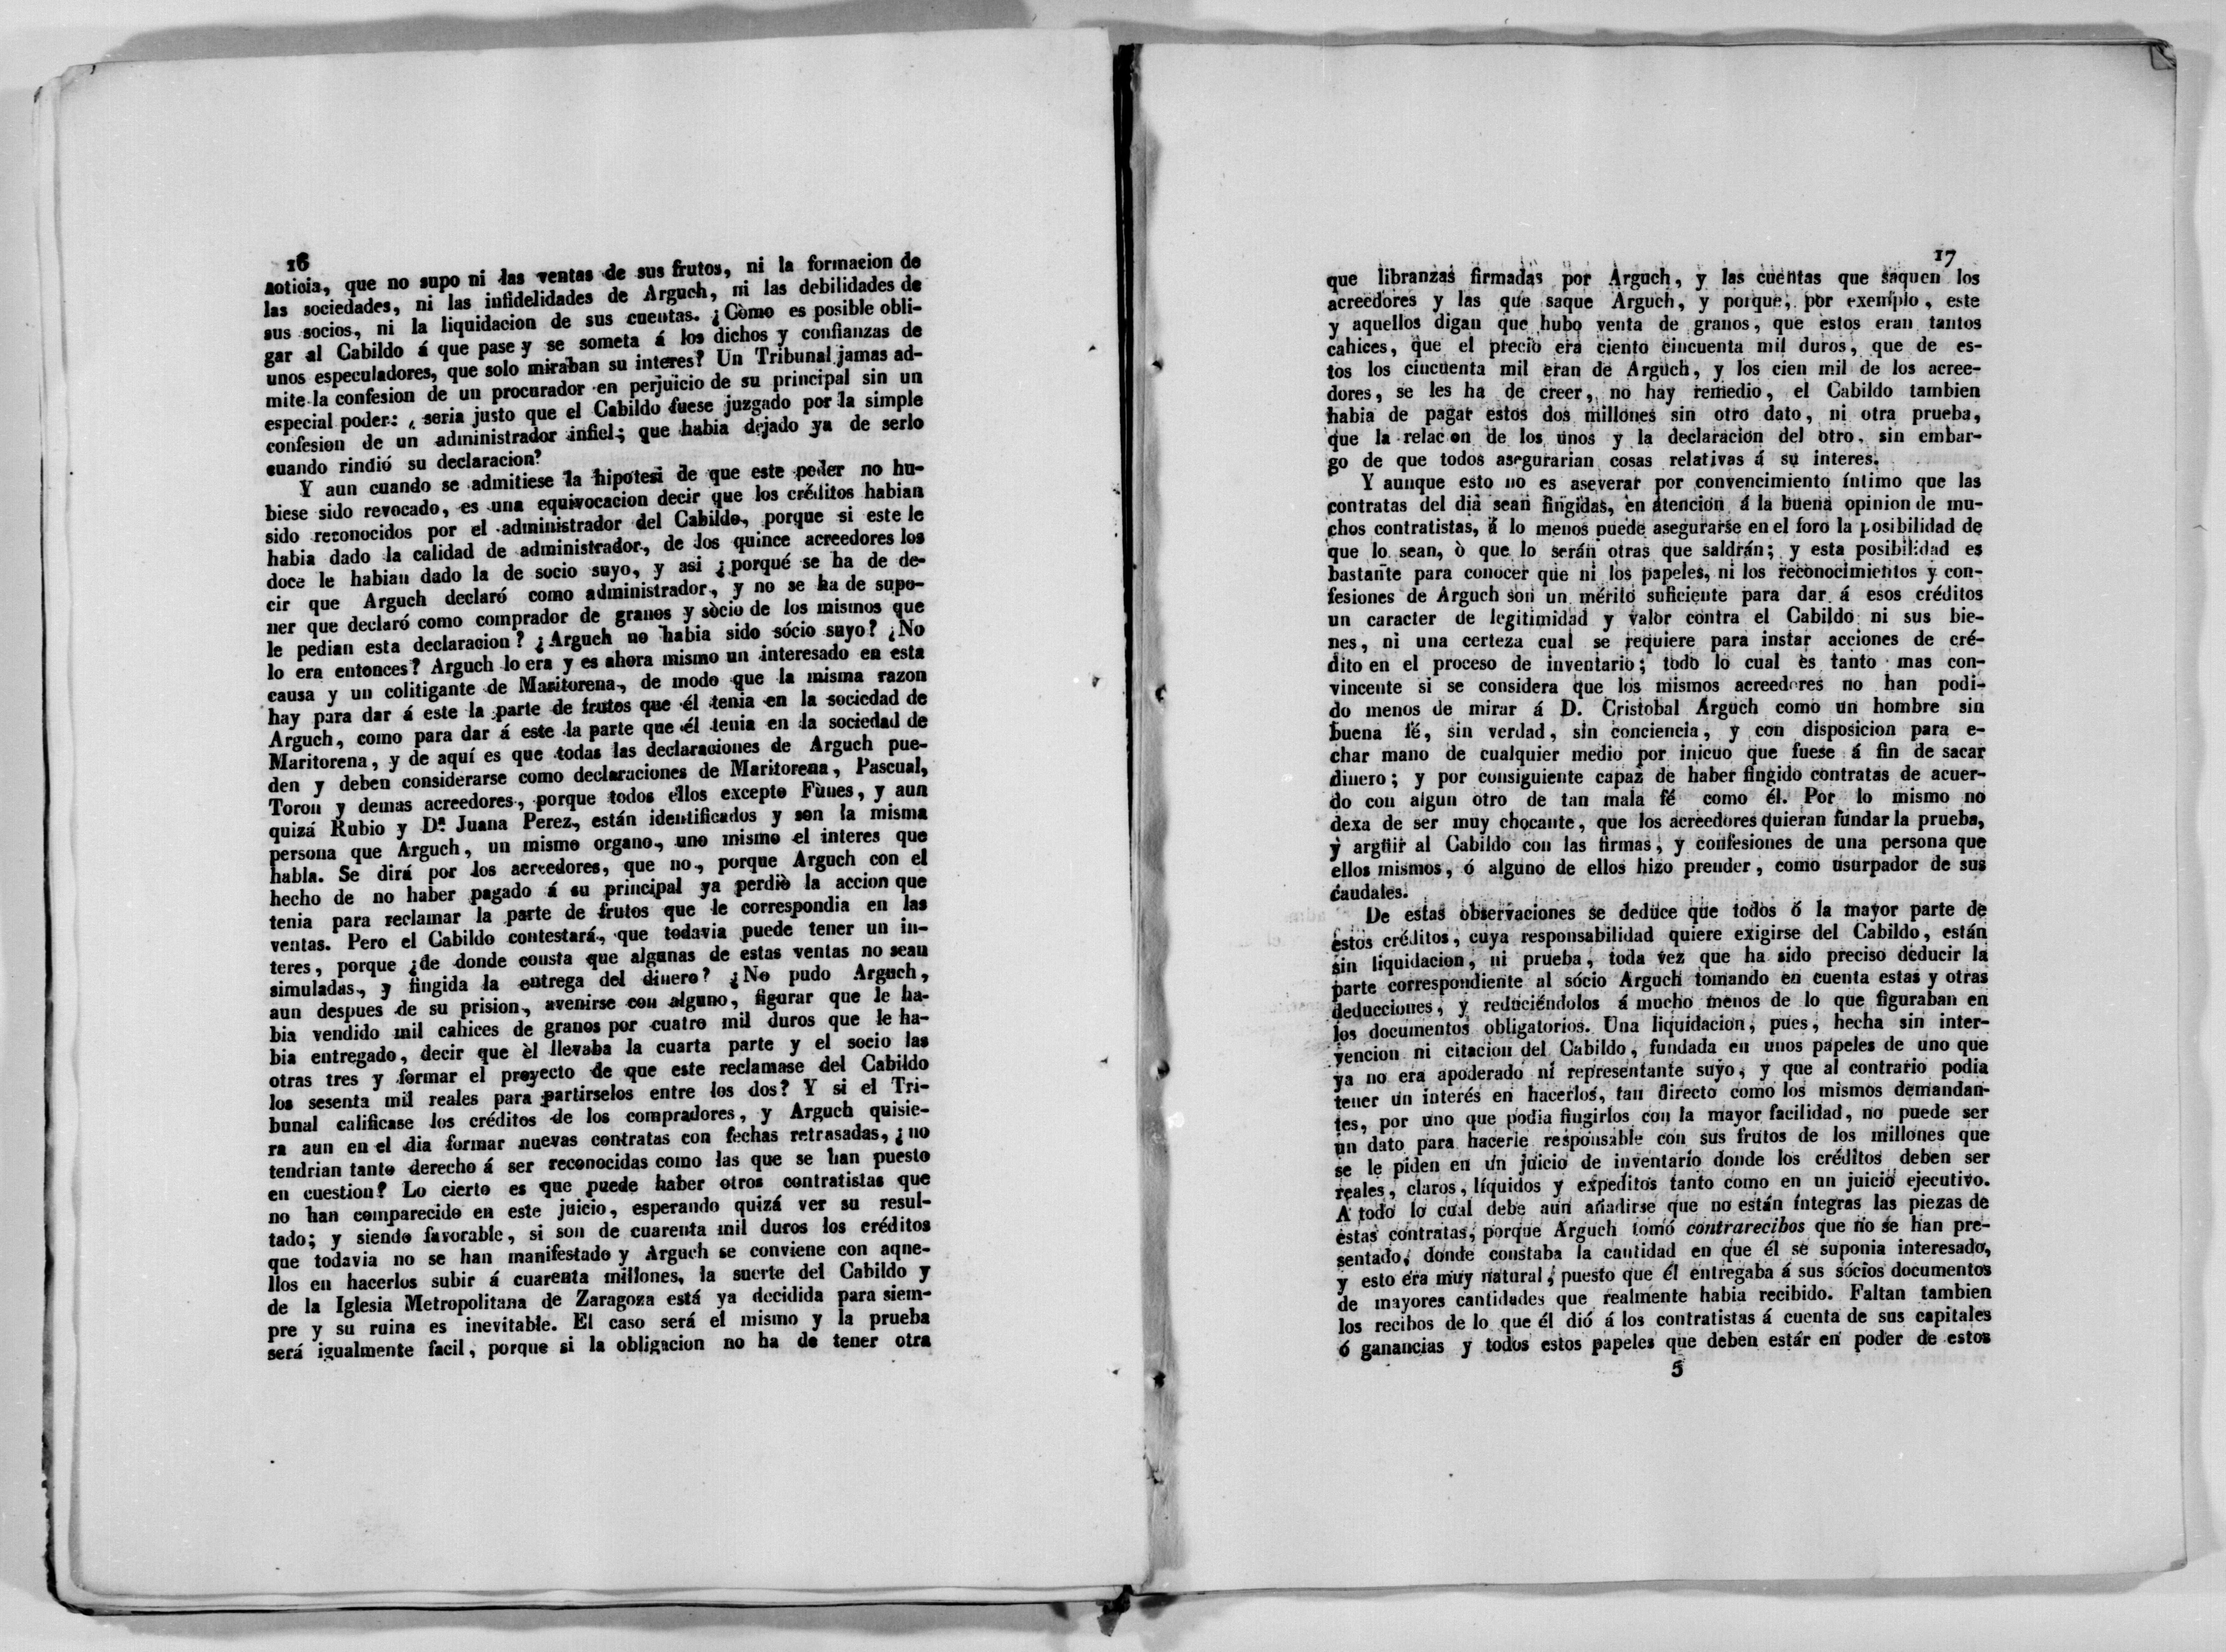 16
noticia, que no supo ni las ventas de sus frutos, ni la formacion de
las sociedades, ni las infidelidades de Arguch, ni las debilidades de
sus socios, ni la liquidacion de sus cuentas. ¿Còmo es posible obli-
gar al Cabildo á que pase y se someta á los dichos y confianzas de
unos especuladores, que solo miraban su interes? Un Tribunal jamas ad-
mite la confesion de un procurador en perjuicio de su principal sin un
especial poder: ¿ seria justo que el Cabildo fuese juzgado por la simple
confesion de un administrador infiel; que habia dejado ya de serlo
cuando rindió su declaracion?
Y aun cuando se admitiese la hipotesi de que este poder no hu-
biese sido revocado, es una equivocacion decir que los créditos habian
sido reconocidos por el administrador del Cabildo, porque si este le
habia dado la calidad de administrador, de los quince acreedores los
doce le habian dado la de socio suyo, y asi ¿porqué se ha de de-
cir que Arguch declaró como administrador, y no se ha de supo-
ner que declaró como comprador de granos y sòcio de los mismos que
le pedian esta declaracion? ¿Arguch no habia sido sócio suyo? ¿No
lo era entonces? Arguch lo era y es ahora mismo un interesado en esta
causa y un colitigante de Maritorena, de modo que la misma razon
hay para dar á este la parte de frutos que él tenia en la sociedad de
Arguch, como para dar á este la parte que él tenia en la sociedad de
Maritorena, y de aquí es que todas las declaraciones de Arguch pue-
den y deben considerarse como declaraciones de Maritorena, Pascual,
Toron y demas acreedores, porque todos ellos excepto Fùnes, y aun
quizá Rubio y D.ª Juana Perez, están identificados y son la misma
persona que Arguch, un mismo organo, uno mismo el interes que
habla. Se dirá por los acreedores, que no, porque Arguch con el
hecho de no haber pagado á su principal ya perdiò la accion que
tenia para reclamar la parte de frutos que le correspondia en las
ventas. Pero el Cabildo contestará, que todavia puede tener un in-
teres, porque ¿de donde consta que algunas de estas ventas no sean
simuladas, y fingida la entrega del dinero? ¿No pudo Arguch,
aun despues de su prision, avenirse con alguno, figurar que le ha-
bia vendido mil cahices de granos por cuatro mil duros que le ha-
bia entregado, decir que èl llevaba la cuarta parte y el socio las
otras tres y formar el proyecto de que este reclamase del Cabildo
los sesenta mil reales para partirselos entre los dos? Y si el Tri-
bunal calificase los créditos de los compradores, y Arguch quisie-
ra aun en el dia formar nuevas contratas con fechas retrasadas, ¿no
tendrian tanto derecho á ser reconocidas como las que se han puesto
en cuestion? Lo cierto es que puede haber otros contratistas que
no han comparecido en este juicio, esperando quizá ver su resul-
tado; y siendo favorable, si son de cuarenta mil duros los créditos
que todavia no se han manifestado y Arguch se conviene con aqne-
llos en hacerlos subir á cuarenta millones, la suerte del Cabildo y
de la Iglesia Metropolitana de Zaragoza está ya decidida para siem-
pre y su ruina es inevitable. El caso será el mismo y la prueba
será igualmente facil, porque si la obligacion no ha de tener otra
17
que libranzas firmadas por Arguch, y las cuentas que saquen los
acreedores y las que saque Arguch, y porque, por exemplo, este
y aquellos digan que hubo venta de granos, que estos eran tantos
cahices, que el precio era ciento cincuenta mil duros, que de es-
tos los cincuenta mil eran de Arguch, y los cien mil de los acree-
dores, se les ha de creer, no hay remedio, el Cabildo tambien
habia de pagar estos dos millones sin otro dato, ni otra prueba,
que la relac on de los unos y la declaracion del otro, sin embar-
go de que todos asegurarian cosas relativas á su interes.
Y aunque esto no es aseverar por convencimiento íntimo que las
contratas del dia sean fingidas, en atencion á la buena opinion de mu-
chos contratistas, á lo menos puede asegurarse en el foro la posibilidad de
que lo sean, ò que lo serán otras que saldrán; y esta posibilidad es
bastante para conocer que ni los papeles, ni los reconocimientos y con-
fesiones de Arguch son un mérito suficiente para dar á esos créditos
un caracter de legitimidad y valor contra el Cabildo ni sus bie-
nes, ni una certeza cual se requiere para instar acciones de cré-
dito en el proceso de inventario; todo lo cual es tanto mas con-
vincente si se considera que los mismos acreedores no han podi-
do menos de mirar á D. Cristobal Arguch como un hombre sin
buena fé, sin verdad, sin conciencia, y con disposicion para e-
char mano de cualquier medio por inicuo que fuese á fin de sacar
dinero; y por consiguiente capaz de haber fingido contratas de acuer-
do con algun otro de tan mala fé como él. Por lo mismo no
dexa de ser muy chocante, que los acreedores quieran fundar la prueba,
y argüir al Cabildo con las firmas, y confesiones de una persona que
ellos mismos, ó alguno de ellos hizo prender, como usurpador de sus
caudales.
De estas observaciones se deduce que todos ó la mayor parte de
estos créditos, cuya responsabilidad quiere exigirse del Cabildo, están
sin liquidacion, ni prueba, toda vez que ha sido preciso deducir la
parte correspondiente al sócio Arguch tomando en cuenta estas y otras
deducciones, y reduciéndolos á mucho menos de lo que figuraban en
los documentos obligatorios. Una liquidacion, pues, hecha sin inter-
vencion ni citacion del Cabildo, fundada en unos papeles de uno que
ya no era apoderado ni representante suyo, y que al contrario podia
tener un interés en hacerlos, tan directo como los mismos demandan-
tes, por uno que podia fingirlos con la mayor facilidad, no puede ser
un dato para hacerle responsable con sus frutos de los millones que
se le piden en un juicio de inventario donde los créditos deben ser
reales, claros, líquidos y expeditos tanto como en un juicio ejecutivo.
A todo lo cual debe aun añadirse que no están íntegras las piezas de
estas contratas, porque Arguch tomó contrarecibos que no se han pre-
sentado, donde constaba la cantidad en que él se suponia interesado,
y esto era muy natural, puesto que él entregaba á sus sócios documentos
de mayores cantidades que realmente habia recibido. Faltan tambien
los recibos de lo que él dió á los contratistas á cuenta de sus capitales
ó ganancias y todos estos papeles que deben estár en poder de estos
5